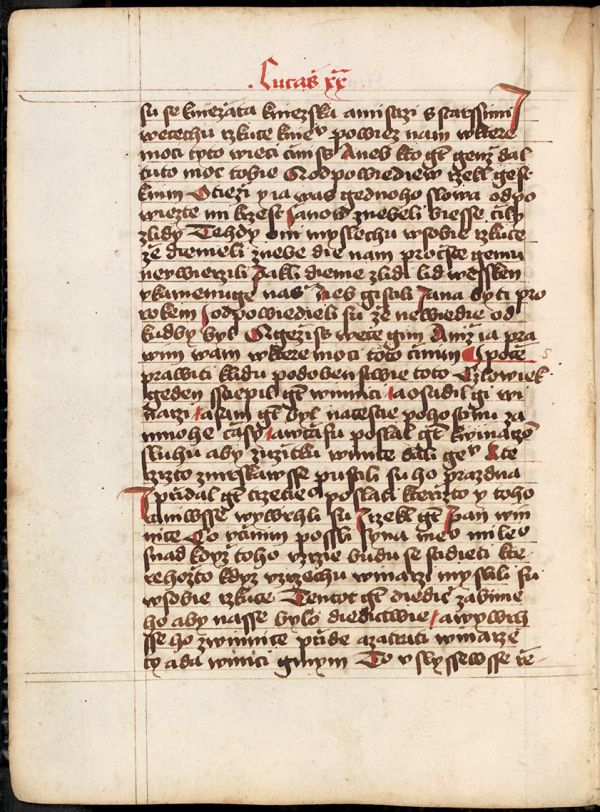 Lucaš xx
su se kniežata kniezska a mistrzi s starssimi
wecechu rzkuce k nieᵘ powiez nam w ktere
moci tyto wieci činiss Aneb kto gt̄ genž dal
tuto moc tobie A odpowiediew rzekl gest
k nim Otieži y ia was gednoho slowa odpo
wiezte mi krzest Janow z nebeli biesse čili
z lidy Tehdy oni myslechu w sobie rzkuce
že diemeli z nebe die nam pročste gemu
newierzili Pakli dieme z lidi lid wessken
ukamenuge nas Neb gisti bili Jana byti pro
rokem J odpowiedieli su že newiedie od
kud by byl A gežiss wece gim Aniž ia pra
wim wam w ktere moci toto činim J poče
prawiti k lidu podobenstwie toto Czlowiek
geden sstiepil gt̄ winnici J a osadil gi wi
narzi J a sam gt̄ byl na cestie pohostinu za
mnohe časy J a w čas su poslal gt̄ k winarzō
sluhu aby z užitku winice dali geᵘ Kte
rzizto zmrskawsse pustili su ho prazdna
J přidal gt̄ trzecieᵒ poslati kterizto y toho
raniwsse wywrhli su J rzekl gt̄ Pan win
nice Co učinim possli syna meᵒ mileᵒ
snad když toho uzrzie budu se stidieti kte
rehožto když uzrzechu winarzi myslili su
w sobie rzkuce Tentot gt̄ diedič zabime
ho aby nasse bylo diedictwie J a wywrh
sse ho z winnice přide a zatrati winarze
ty a da winici ginym To uslyssewsse rē